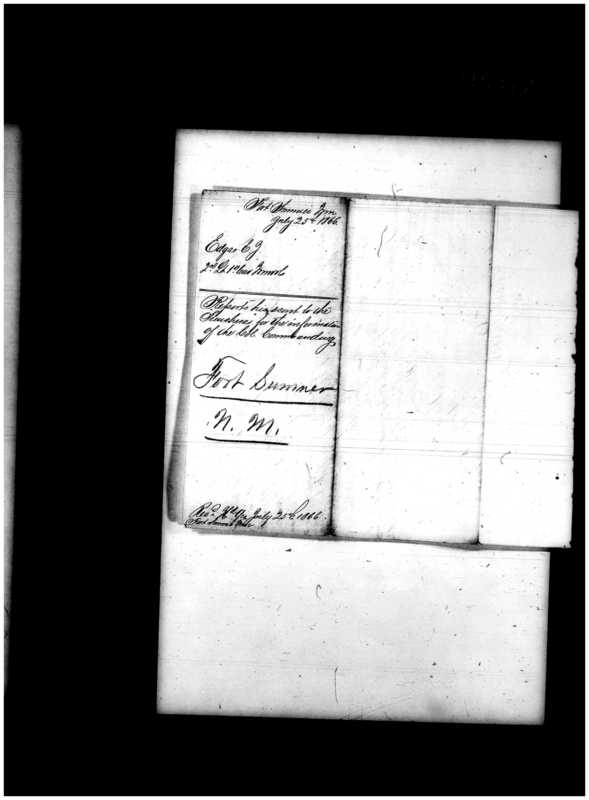 Fort Sumner N.M.
July 25th 1866
Edgar C J
2nd Lt 1st Cav
Reports his scout to the
for the information
of the Col. Commanding
Fort Sumner
N. M.
Recd. Hd Qrs July 25th 1866.
Fort Sumner